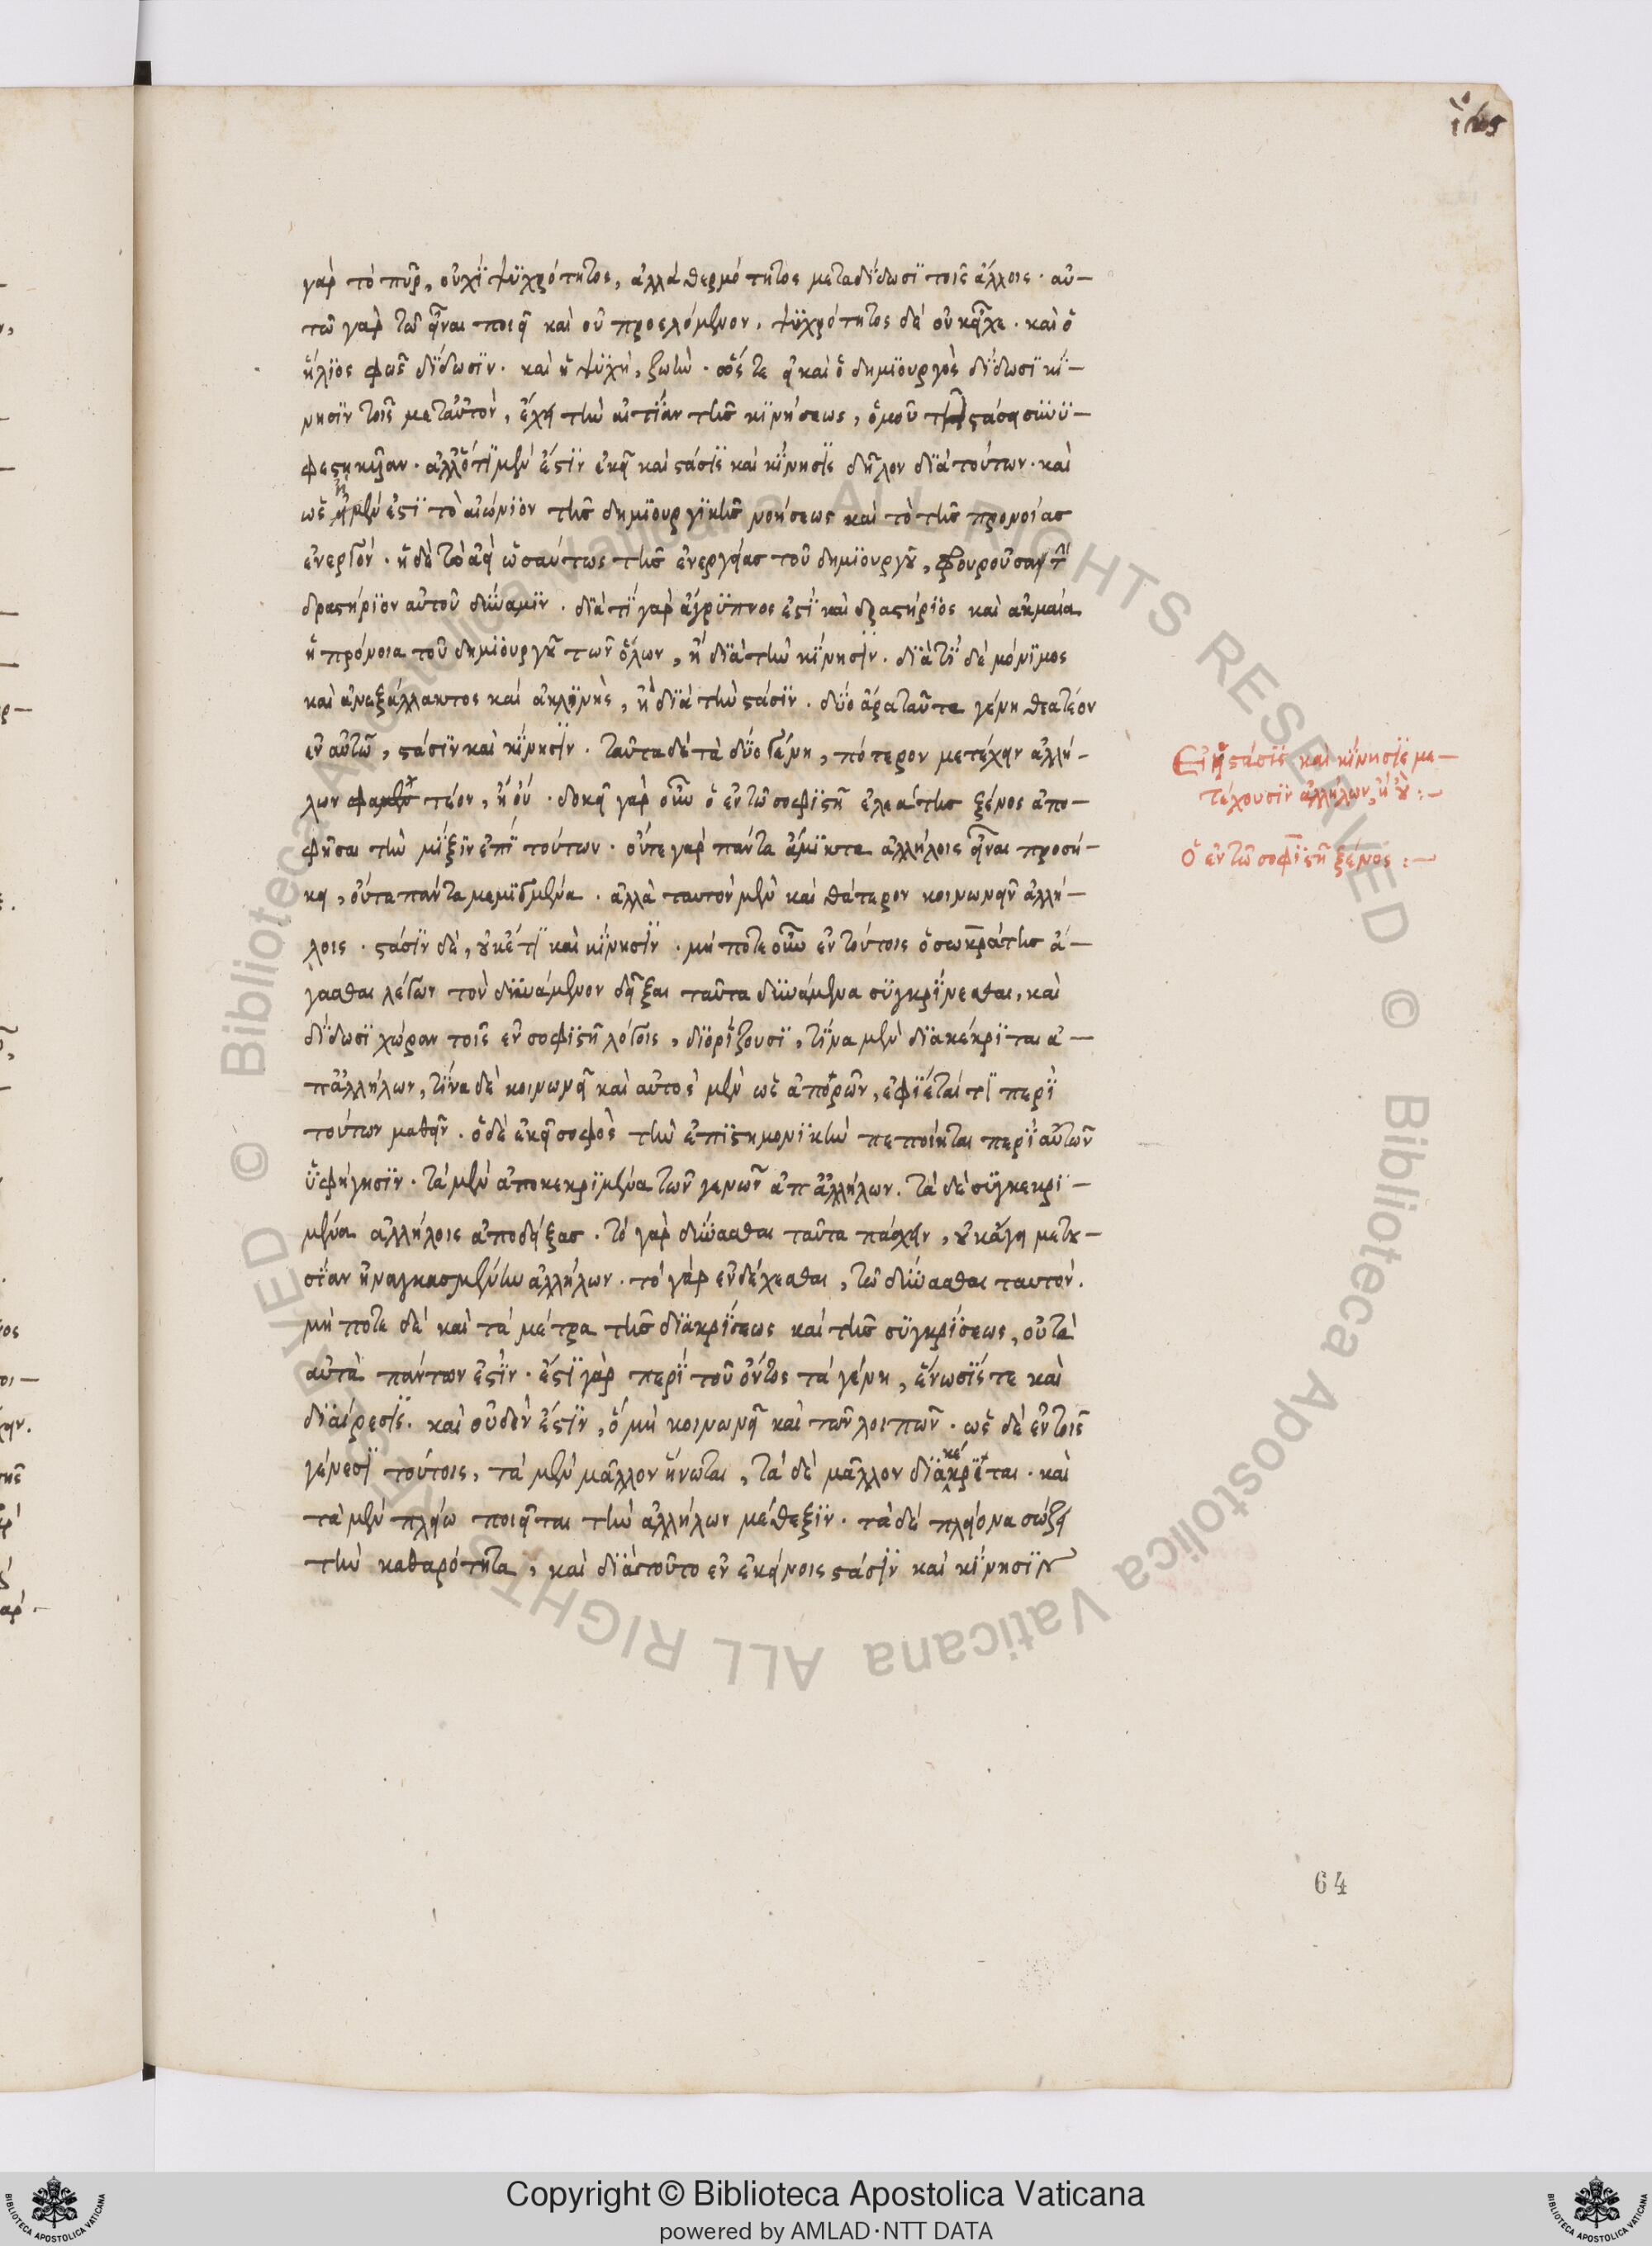 γὰρ τὸ πῦρ, οὐχὶ ψυχρότητος, ἀλλὰ θερμότητος μεταδίδωσι τοῖς ἄλλοις · αὐ–
τῶ γὰρ τῶ εἶναι ποιεῖ καὶ οὐ προελόμενον, ψυχρότητος δὲ οὐκ εἶχε · καὶ ὁ
ἥλιος φῶς δίδωσιν · καὶ ἡ ψυχὴ, ζωὴν · ὥστε εἰ καὶ ὁ δημιουργὸς δίδωσι κί–
νησιν τοῖς μετ αὐτὸν, ἔχει τὴν αἰτίαν τῆς κινήσεως, ὁμοῦ τῆ στάσει συνυ–
φεστηκυῖαν · ἀλλ ὅτι μὲν ἐστὶν ἐκεῖ καὶ στάσις καὶ κίνησις δῆλον διὰ τούτων · καὶ
ὡς ἡ μὲν ἐστὶ τὸ αἰώνιον τῆς δημιουργικῆς νοήσεως καὶ τὸ τῆς προνοίας
ἐνεργὸν · ἡ δὲ τὸ ἀεὶ ὡσαύτως τῆς ἐνεργείας τοῦ δημιουργοῦ, φρουροῦσα τὴν
δραστήριον αὐτοῦ δύναμιν · διὰ τί γὰρ ἄγρυπνος ἐστὶ καὶ δραστήριος καὶ ἀκμαία
ἡ πρόνοια τοῦ δημιουργοῦ τῶν ὅλων, ἢ διὰ τὴν κίνησιν · διὰ τί δὲ μόνιμος
καὶ ἀνεξάλλακτος καὶ ἀκλινὴς, ἢ διὰ τὴν στάσιν · δύο ἄρα ταῦτα γένη θεατέον
ἐν αὐτῶ, στάσιν καὶ κίνησιν · ταῦτα δὲ τὰ δύο γένη, πότερον μετέχειν ἀλλή–
λων φατέον, ἢ οὐ · δοκεῖ γὰρ οὖν ὁ ἐν τῶ σοφιστῆ ἐλεάτης ξένος ἀπο–
φῆσαι τὴν μίξιν ἐπὶ τούτων · οὔτε γὰρ πάντα ἄμικτα ἀλλήλοις εἶναι προσή–
κει, οὔτε πάντα μεμιγμένα · ἀλλὰ ταυτὸν μὲν καὶ θάτερον κοινωνεῖν ἀλλή–
λοις · στάσιν δὲ, οὐκέτι καὶ κίνησιν · μή ποτε οὖν ἐν τούτοις ὁ σωκράτης ἄ–
γασθαι λέγων τὸν δυνάμενον δεῖξαι ταῦτα δυνάμενα συγκρίνεσθαι, καὶ
δίδωσι χώραν τοῖς ἐν σοφιστῆ λόγοις, διορίζουσι, τίνα μὲν διακέκριται ἀ–
π ἀλλήλων, τίνα δὲ κοινωνεῖ καὶ αὐτὸς μὲν ὡς ἀπορῶν, ἐφίεταί τι περὶ
τούτων μαθεῖν · ὁ δὲ ἐκεῖ σοφὸς τὴν ἐπιστημονικὴν πεποίηται περὶ αὐτῶν
ὑφήγησιν · τὰ μὲν ἀποκεκριμένα τῶν γενῶν ἀπ ἀλλήλων. τὰ δὲ συγκεκρι–
μένα ἀλλήλοις ἀποδείξας · τὸ γὰρ δύνασθαι ταῦτα πάσχειν, οὐκ ἄγει μετου–
σίαν ἠναγκασμένην ἀλλήλων · τὸ γὰρ ἐνδέχεσθαι, τῶ δύνασθαι ταυτὸν.
μή ποτε δὲ καὶ τὰ μέτρα τῆς διακρίσεως καὶ τῆς συγκρίσεως, οὐ τὰ
αὐτὰ πάντων ἐστὶν · ἔστι γὰρ περὶ τοῦ ὄντος τὰ γένη, ἕνωσίς τε καὶ
διαίρεσις · καὶ οὐδὲν ἐστὶν, ὃ μὴ κοινωνεῖ καὶ τῶν λοιπῶν · ὡς δὲ ἐν τοῖς
γένεσι τούτοις, τὰ μὲν μᾶλλον ἥνωται, τὰ δὲ μᾶλλον διακέκριται · καὶ
τὰ μὲν πλείω ποιεῖται τὴν ἀλλήλων μέθεξιν · τὰ δὲ πλείονα σώζει
τὴν καθαρότητα, καὶ διὰ τοῦτο ἐν ἐκείνοις στάσιν καὶ κίνησιν
Εἰ ἡ στάσις καὶ κίνησις με–
τέχουσιν ἀλλήλων, ἢ οὐ :–
Ὁ ἐν τῶ σοφιστῆ ξένος :–
64
Copyright © Biblioteca Apostolica Vaticana
powered by AMLAD·NTT DATA
© Biblioteca Apostolica Vaticana ALL RIGHTS RESERVED © Biblioteca Apostolica Vaticana ALL RIGHTS RESERVED